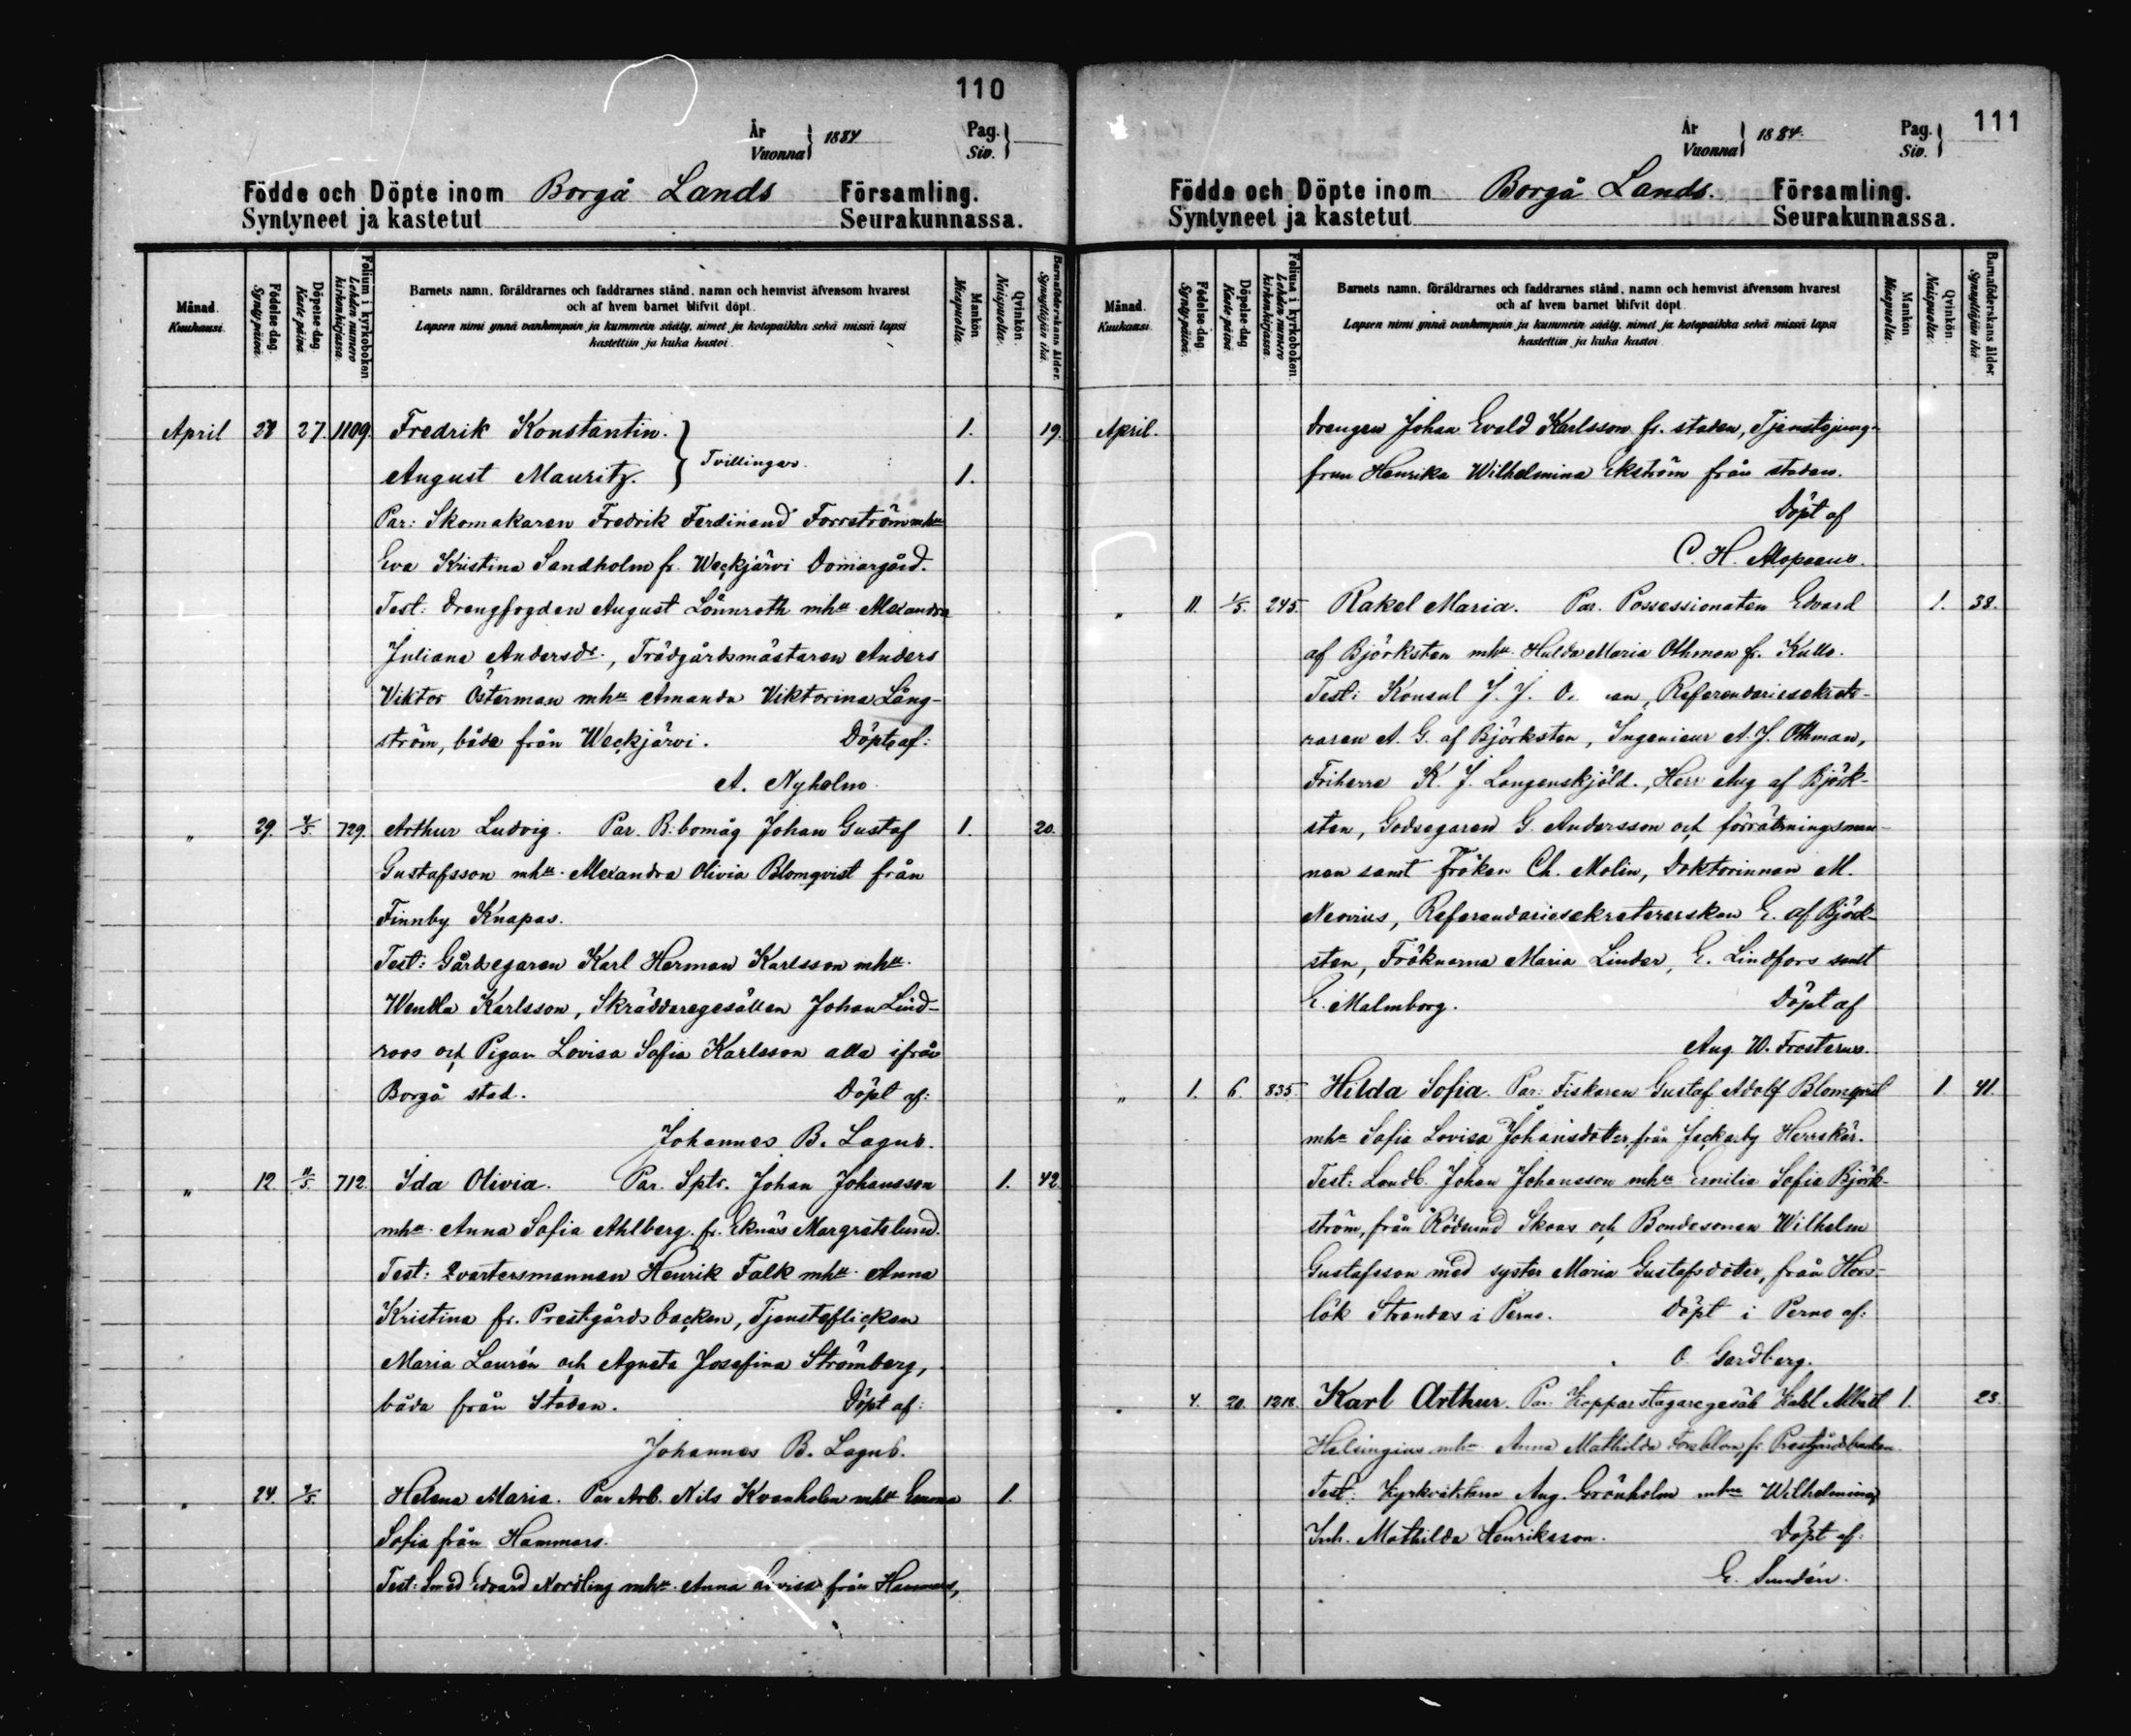 110
År
Vuonna
1884
Pag.
Siv.
Födde och Döpte inom Borgå Lands Församling.
Syntyneet ja kastetut Seurakunnassa.
Månad.
Kuukausi.
Födelse-dag.
Syntypäivä.
Döpelse-dag.
Kaste päivä.
Folium i kyrkoboken
Lehden numero
kirkonkirjassa.
Barnets namn, föräldrarnes och faddrarnes stånd, namn och hemvist äfvensom hvarest
och af hvem barnet blifvit döpt.
Lapsen nimi ynnä vanhempain ja kummein sääty, nimet ja kotopaikka sekä missä lapsi
kastettiin ja kuka kastoi.
Mankön
Miespuolta.
Qvinkön.
Naispuolta.
Barnaföderskans ålder.
Synnyttäjän ikä.
April 27. 1109. Fredrik Konstantin. 1. 19.
August Mauritz. } Tvillingar. 1.
Par: Skomakaren Fredrik Ferdinand Forsström mhu
Eva Kristina Sandholm fr. Weckjärvi Domargård.
Test: Drengfogden August Lönnroth mhu Alexandra
Juliana Andersdr., Trädgårdsmästaren Anders
Viktor Österman mhu Amanda Viktorina Lång-
ström, båda från Weckjärvi. Döpte af:
A. Nyholm.
" 29. 4/5. 729. Arthur Ludvig. Par. B:bomåg Johan Gustaf 1. 20.
Gustafsson mhu. Alexandra Olivia Blomqvist från
Finnby Knapas.
Test: Gårdsegaren Karl Herman Karlsson mhu.
Wendla Karlsson, Skräddaregesällen Johan Lind-
roos och Pigan Lovisa Sofia Karlsson alla ifrån
Borgå stad. Döpt af:
Johannes B. Lagus.
" 12. 11/5. 712. Ida Olivia. Par. Sptr. Johan Johansson 1. 42
mhu. Anna Sofia Ahlberg. fr. Eknäs Margretelund.
Test: Qvartersmannen Henrik Falk mhu. Anna
Kristina fr. Prestgårdsbacken, Tjensteflickan
Maria Laurén och Agneta Josefina Strömberg,
båda från Staden. Döpt af:
Johannes B. Lagus.
" 24. Helena Maria. Par Arb. Nils Kvanholm mhu Emma 1.
Sofia från Hammars.
Test: Smed Edvard Nordling mhu. Anna Lovisa från Hammars,
111
År
Vuonna
1884.
Pag.
Siv.
Födde och Döpte inom Borgå Lands. Församling.
Syntyneet ja kastetut Seurakunnassa.
Månad.
Kuukausi.
Födelse-dag.
Syntypäivä.
Döpelse-dag
Kaste päivä.
Folium i kyrkoboken
Lehden numero
kirkonkirjassa.
Barnets namn, föräldrarnes och faddrarnes stånd, namn och hemvist äfvensom hvarest
och af hvem barnet blifvit döpt.
Lapsen nimi ynnä vanhempain ja kummein sääty, nimet ja kotopaikka sekä missä lapsi
kastettiin ja kuka kastoi.
Mankön
Miespuolta.
Qvinkön.
Naispuolta.
Barnaföderskans ålder.
Synnyttäjän ikä.
April. Drengen Johan Evald Karlsson fr. staden, Tjenstejung-
frun Henrika Wilhelmina Ekström från staden.
Döpt af
C. H. Alopaeus.
" 11. 1/5. 245. Rakel Maria. Par. Possessionaten Edvard 1. 38.
af Björksten mhu. Hulda Maria Othman fr. Kullo.
Test: Konsul J. J. Referendariesekrete-
raren A. G. af Björksten, Ingenieur A. J. Othman,
Friherre K. J. Langenskjöld., Herr Aug af Björk-
sten, Godsegaren G. Andersson och förrättningsman-
nen samt Fröken Ch. Molin, Doktorinnan M.
Neovius, Referendariesekreterarskan E. af Björk-
sten, Fröknarna Maria Linder, E. Lindfors samt
E. Malmborg. Döpt af
Aug. W. Frosterus.
" 1. 6. 835. Hilda Sofia. Par: Fiskaren Gustaf Adolf Blomqvist 1. 41.
mhu Sofia Lovisa Johansdotter, från Jackarby Herrskär.
Test: Landb. Johan Johansson mhu Emilia Sofia Björk-
ström, från Rödsund Skoas och Bondesonen Wilhelm
Gustafsson med syster Maria Gustafsdotter, från Hors-
lök Strandas i Perno. Döpt i Perno af:
O. Gardberg.
" 4. 20. Karl Arthur. Par. Kopparslagaregesäll Karl Albert 1. 23.
Helsingius mhu Anna Mathilda fr. Prestgårdsbacken.
Test: Kyrkväktaren Aug. Grönholm mhu Wilhelmina,
Inh. Mathilda Henriksson. Döpt af:
E. Sundén.